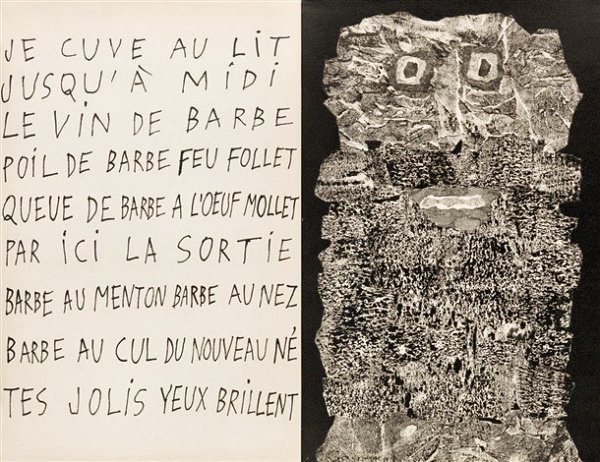 JE CUVE AU LIT
JUSQU'À MIDI
LE VIN DE BARBE
POIL DE BARBE FEU FOLLET
QUEUE DE BARBE A L'OEUF MOLLET
PAR ICI LA SORTIE
BARBE AU MENTON BARBE AU NEZ
BARBE AU CUL DU NOUVEAU NÉ
TES JOLIS YEUX BRILLENT